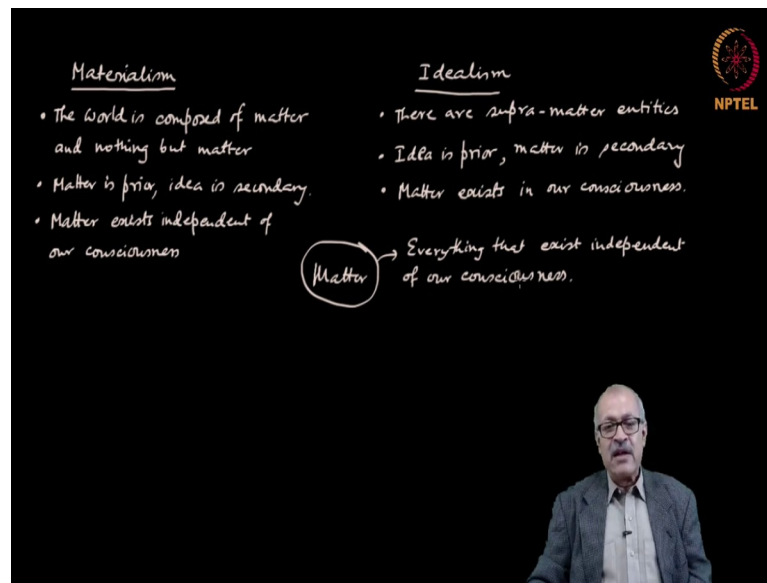 Materialism
• The world is composed of matter
and nothing but matter
• Matter is prior, idea is secondary.
• Matter exists independent of
our consciousness
Idealism
• There are supra-matter entities
• Idea is prior, matter is secondary
• Matter exists in our consciousness.
Matter → Everything that exist independent
of our consciousness.
NPTEL